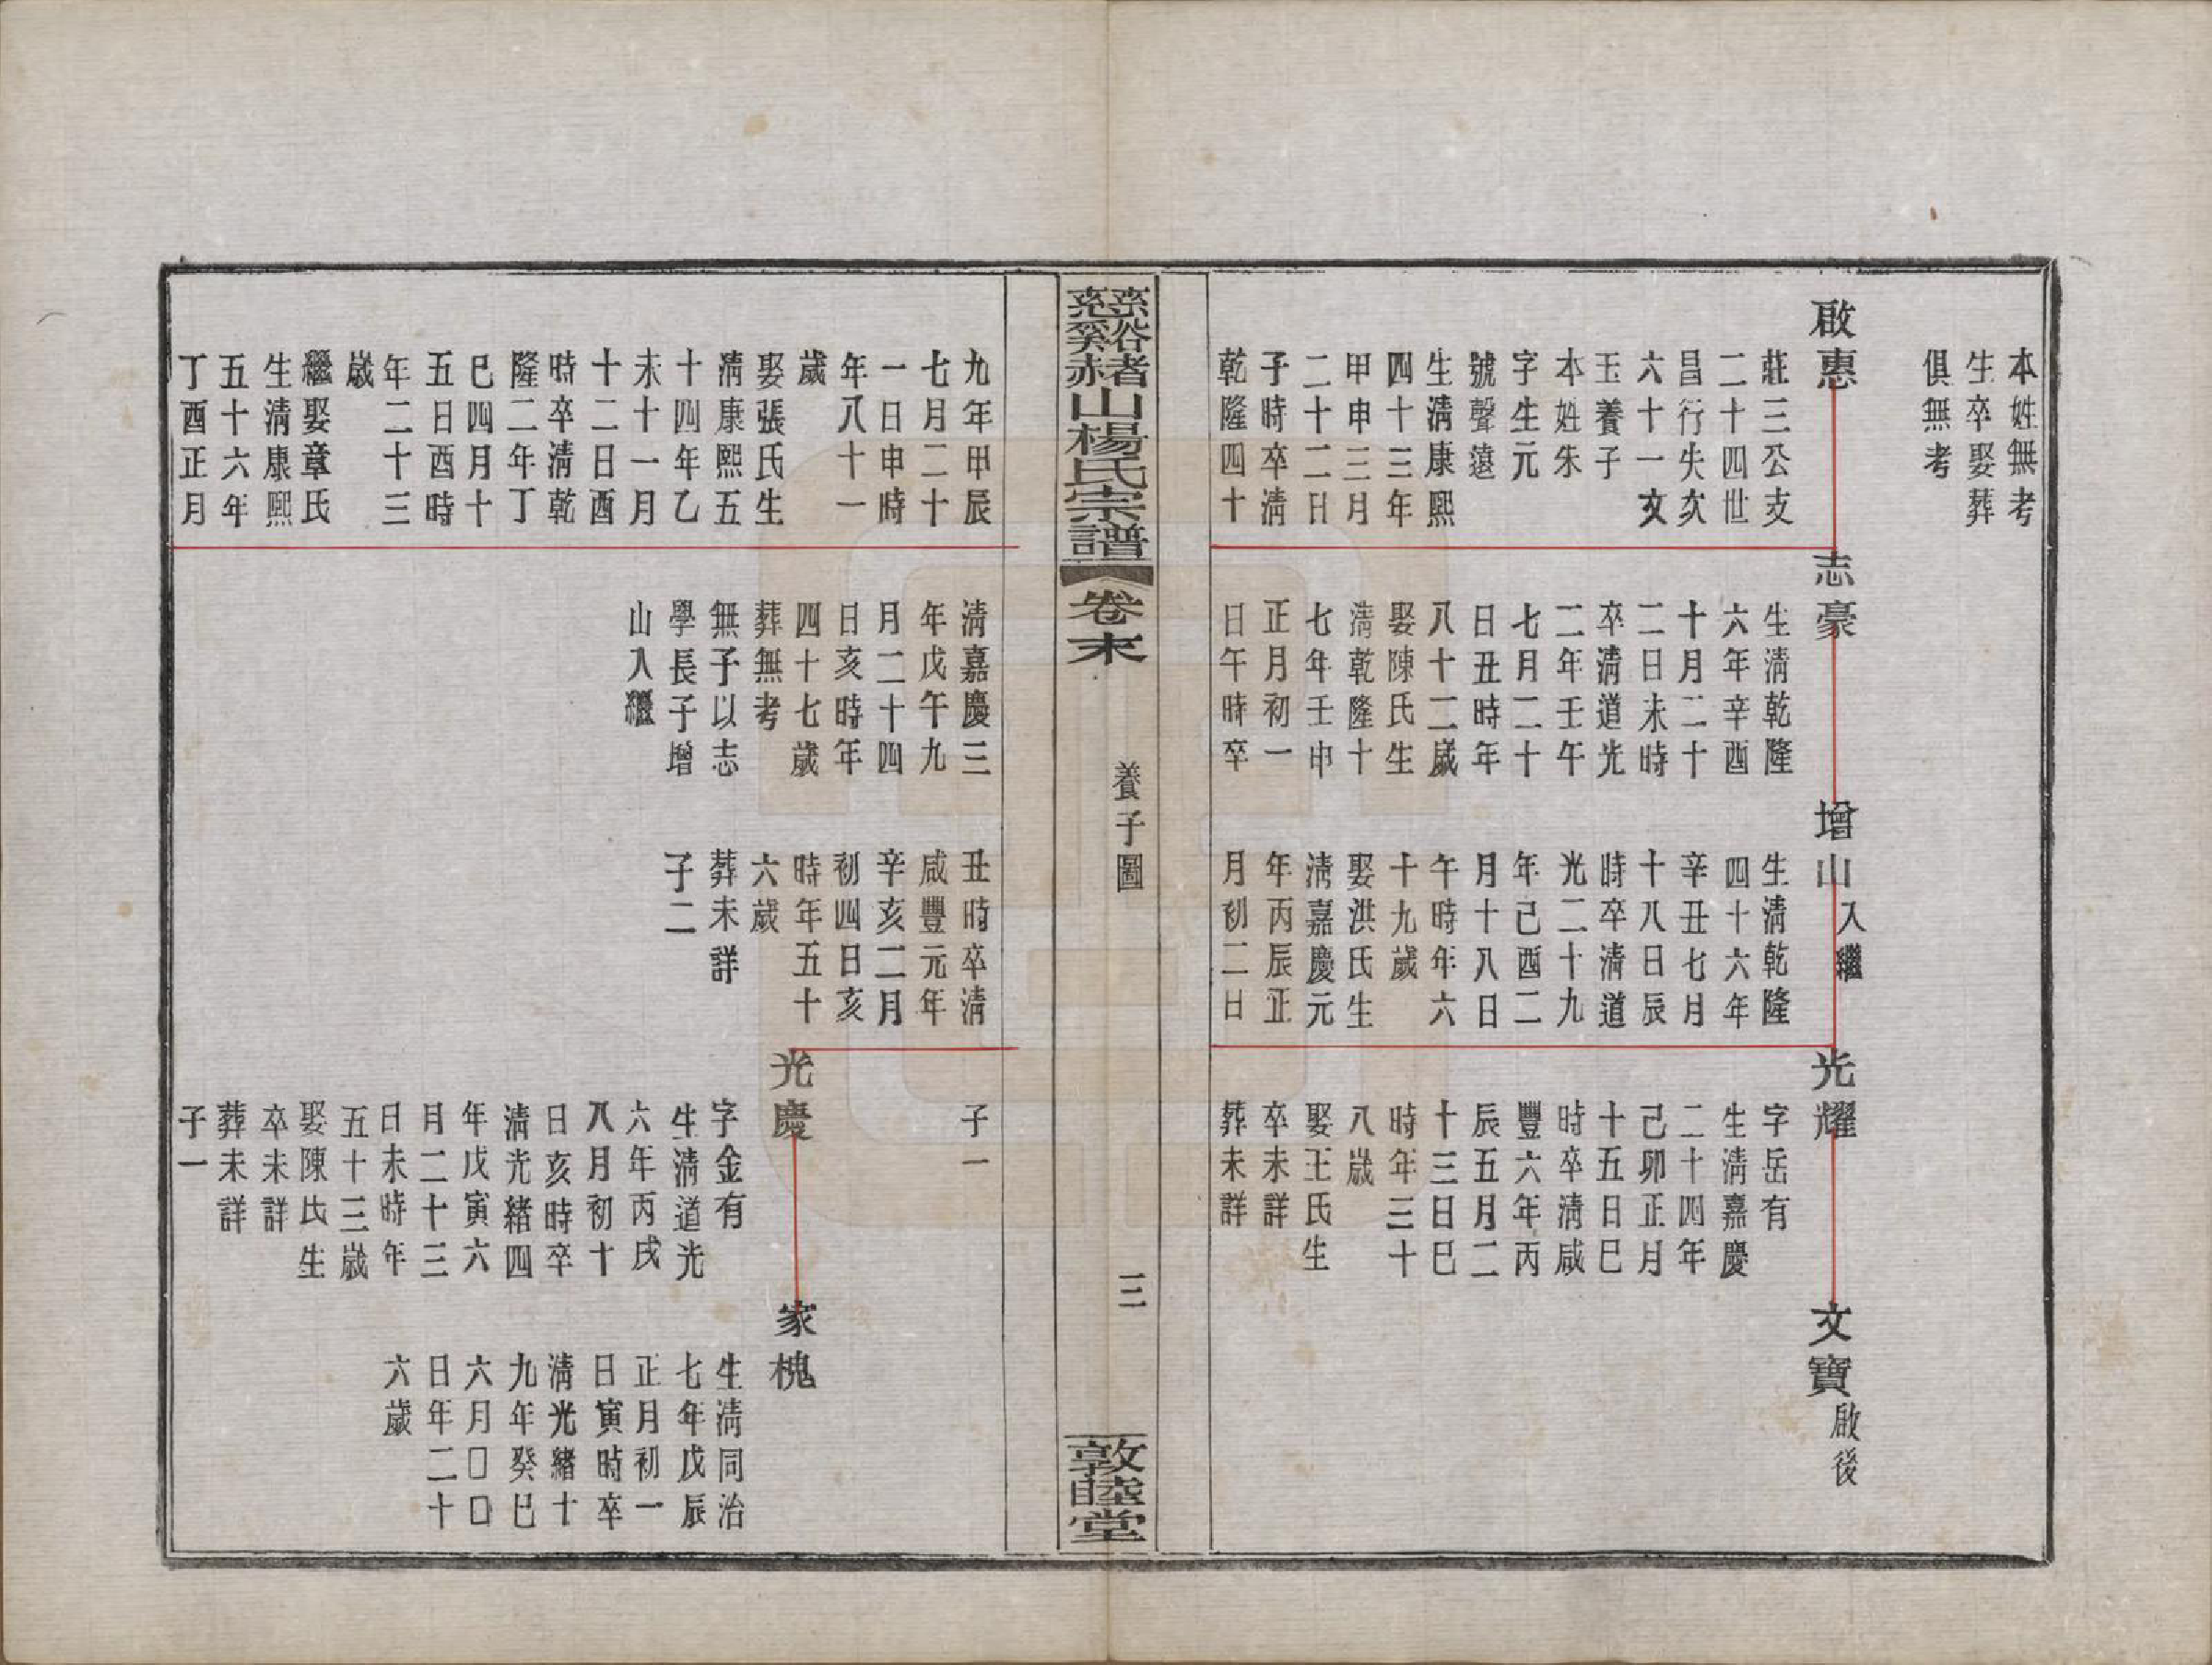 本姓無考
生卒娶葬
俱無考
啟惠
莊三公支
二十四世
昌行失次
六十一文
玉養子
本姓朱
字生元
號聲遠
生清康熙
四十三年
甲申三月
二十二日
子時卒清
乾隆四十
志豪
生清乾隆
六年辛酉
十月二十
二日未時
卒清道光
二年壬午
七月二十
日丑時年
八十二歲
娶陳氏生
清乾隆十
七年壬申
正月初一
日午時卒
增山入繼
生清乾隆
四十六年
辛丑七月
十八日辰
時卒清道
光二十九
年己酉二
月十八日
午時年六
十九歲
娶洪氏生
清嘉慶元
年丙辰正
月初二日
光耀
字岳有
生清嘉慶
二十四年
己卯正月
十五日巳
時卒清咸
豐六年丙
辰五月二
十三日巳
時年三十
八歲
娶王氏生
卒未詳
葬未詳
文寶啟後
慈谿赭山楊氏宗譜
卷末
養子圖
三
敦睦堂
九年甲辰
七月二十
一日申時
年八十一
歲
娶張氏生
清康熙五
十四年乙
未十一月
十二日酉
時卒清乾
隆二年丁
巳四月十
五日酉時
年二十三
歲
繼娶章氏
生清康熙
五十六年
丁酉正月
清嘉慶三
年戊午九
月二十四
日亥時年
四十七歲
葬無考
無子以志
學長子增
山入繼
丑時卒清
咸豐元年
辛亥二月
初四日亥
時年五十
六歲
葬未詳
子二
子一
光慶
字金有
生清道光
六年丙戌
八月初十
日亥時卒
清光緒四
年戊寅六
月二十三
日未時年
五十三歲
娶陳氏生
卒未詳
葬未詳
子一
家槐
生清同治
七年戊辰
正月初一
日寅時卒
清光緒十
九年癸巳
六月囗囗
日年二十
六歲